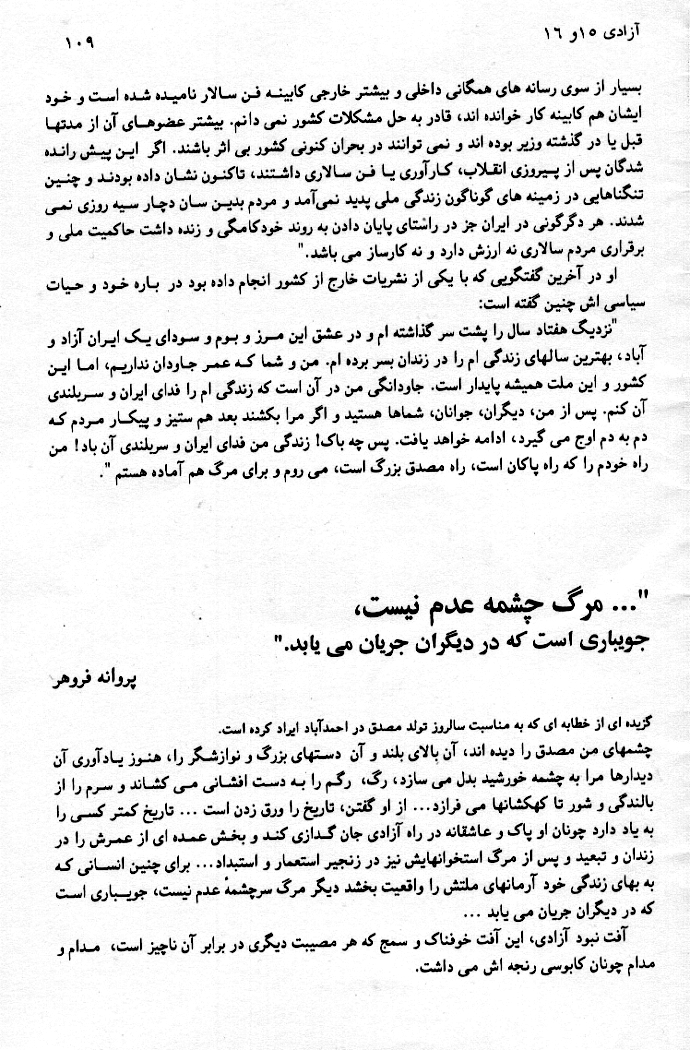 آزادی ۱۵ و ۱۶
۱۰۹
بسیار از سوی رسانه های همگانی داخلی و بیشتر خارجی کابینـه فـن سـالار نامیـده شـده اسـت و خـود
ایشان هم کابینه کار خوانده اند، قادر به حل مشکلات کشور نمی دانم. بیشتر عضوهـای آن از مدتهـا
قبل یا در گذشته وزیر بوده اند و نمی توانند در بحران کنونی کشور بی اثر باشند. اگر این پیش رانده
شدگان پس از پیروزی انقلاب، کارآوری یـا فـن سـالاری داشتنـد، تاکنـون نشـان داده بودنـد و چنیـن
تنگناهایی در زمینه های گوناگون زندگی ملی پدید نمی‌آمد و مردم بدین سان دچار سیه روزی نمـی
شدند. هر دگرگونی در ایران جز در راستای پایان دادن به روند خودکامگی و زنده داشت حاکمیت ملی و
برقراری مردم سالاری نه ارزش دارد و نه کارساز می باشد."
او در آخرین گفتگویی که با یکی از نشریات خارج از کشور انجام داده بود در باره خـود و حیـات
سیاسی اش چنین گفته است:
"نزدیک هفتاد سال را پشت سر گذاشته ام و در عشق این مـرز و بـوم و سـودای یـک ایـران آزاد و
آباد، بهترین سالهای زندگی ام را در زندان بسر برده ام. من و شما کـه عمـر جـاودان نداریـم، امـا ایـن
کشور و این ملت همیشه پایدار است. جاودانگی من در آن است که زندگی ام را فدای ایران و سربلندی
آن کنم. پس از من، دیگران، جوانان، شماها هستید و اگر مرا بکشند بعد هـم ستیـز و پیکـار مـردم کـه
دم به دم اوج می گیرد، ادامه خواهد یافت. پس چه باک! زندگی من فدای ایران و سربلندی آن باد! من
راه خودم را که راه پاکان است، راه مصدق بزرگ است، می روم و برای مرگ هم آماده هستم ".
"... مرگ چشمه عدم نیست،
جویباری است که در دیگران جریان می یابد."
پروانه فروهر
گزیده ای از خطابه ای که به مناسبت سالروز تولد مصدق در احمدآباد ایراد کرده است.
چشمهای من مصدق را دیده اند، آن بالای بلند و آن دستهای بزرگ و نوازشگر را، هنـوز یـادآوری آن
دیدارها مرا به چشمه خورشید بدل می سازد، رگ، رگم را بـه دست افشانی مـی کشـاند و سـرم را از
بالندگی و شور تا کهکشانها می فرازد... از او گفتن، تاریخ را ورق زدن است ... تاریخ کمتر کسـی را
به یاد دارد چونان او پاک و عاشقانه در راه آزادی جان گـدازی کنـد و بخـش عمـده ای از عمـرش را در
زندان و تبعید و پس از مرگ استخوانهایش نیز در زنجیر استعمار و استبداد... برای چنیـن انسـانی کـه
به بهای زندگی خود آرمانهای ملتش را واقعیت بخشد دیگر مرگ سرچشمهٔ عدم نیست، جویـباری است
که در دیگران جریان می یابد ...
آفت نبود آزادی، این آفت خوفناک و سمج که هر مصیبت دیگری در برابر آن ناچیز است، مـدام و
مدام چونان کابوسی رنجه اش می داشت.